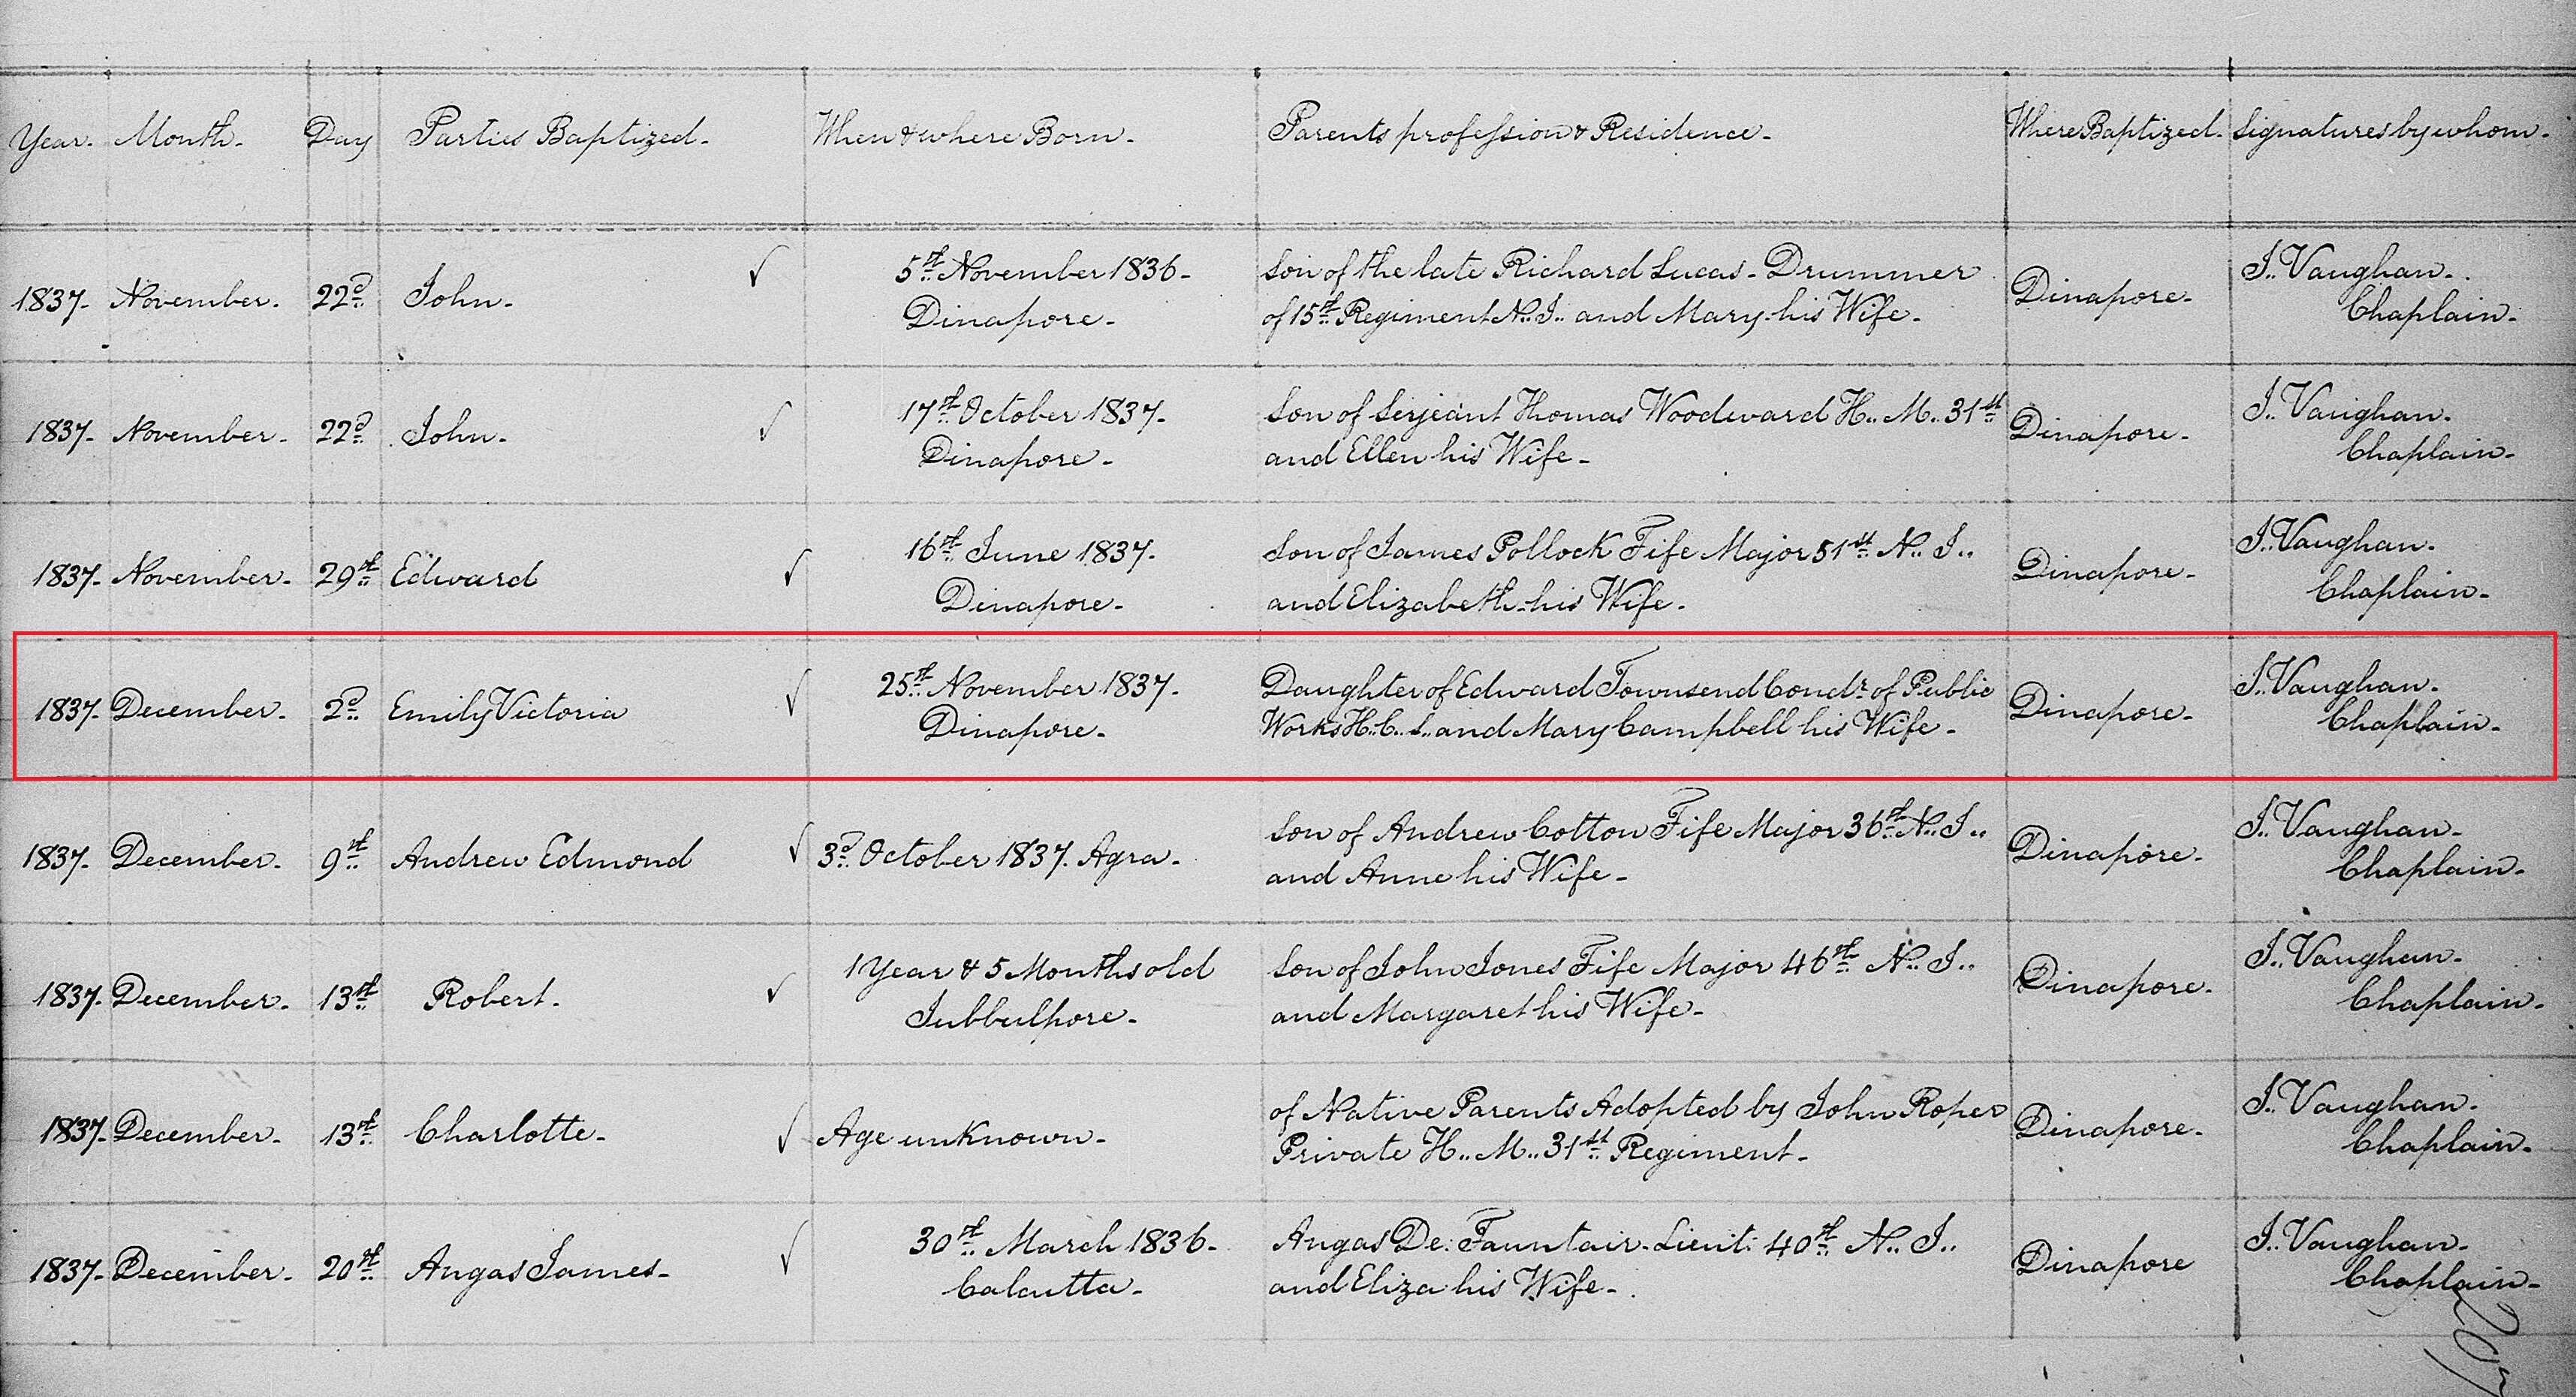 Year. Month. Day Parties Baptized. When & where Born. Parents profession & Residence. Where Baptized. Signatures by whom.
1837. November. 22d John. 5th November 1836. Son of the late Richard Lucas Drummer Dinapore. J. Vaughan.
Dinapore. of 15th Regiment N. I. and Mary his Wife. Chaplain.
1837. November. 22d John. 17th October 1837. Son of Serjeant Thomas Woodward H. M. 31st Dinapore. J. Vaughan.
Dinapore. and Ellen his Wife. Chaplain.
1837. November. 29th Edward 16th June 1837. Son of James Pollock Fife Major 51st N. I. Dinapore. J. Vaughan.
Dinapore. and Elizabeth his Wife. Chaplain.
1837. December. 2d Emily Victoria 25th November 1837. Daughter of Edward Townsend Condr. of Public Dinapore. J. Vaughan.
Dinapore. Works H. C. S. and Mary Campbell his Wife. Chaplain.
1837. December. 9th Andrew Edmond 3d October 1837. Agra. Son of Andrew Cotton Fife Major 36th N. I. Dinapore. J. Vaughan.
and Anne his Wife. Chaplain.
1837. December. 13th Robert. 1 Year & 5 Months old Son of John Jones Fife Major 46th N. I. Dinapore. J. Vaughan.
Jubbulpore. and Margaret his Wife. Chaplain.
1837. December. 13th Charlotte. Age unknown. of Native Parents Adopted by John Roper Dinapore. J. Vaughan.
Private H. M. 31st Regiment. Chaplain.
1837. December. 20th Angas James. 30th March 1836. Angas De. Fauntair. Lieut. 40th N. I. Dinapore J. Vaughan.
Calcutta. and Eliza his Wife. Chaplain.